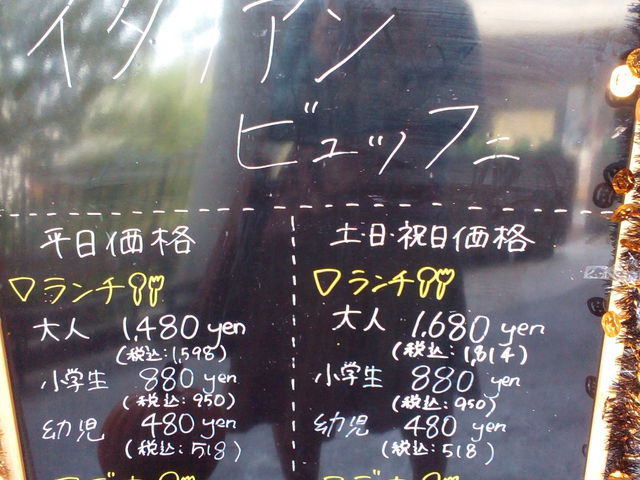 イタリアン
ビュッフェ
平日価格
ランチ
大人 1,480 yen
(税込:1,598)
小学生 880 yen
(税込:950)
幼児 480 yen
(税込:518)
土日・祝日価格
ランチ
大人 1,680 yen
(税込:1,814)
小学生 880 yen
(税込:950)
幼児 480 yen
(税込:518)